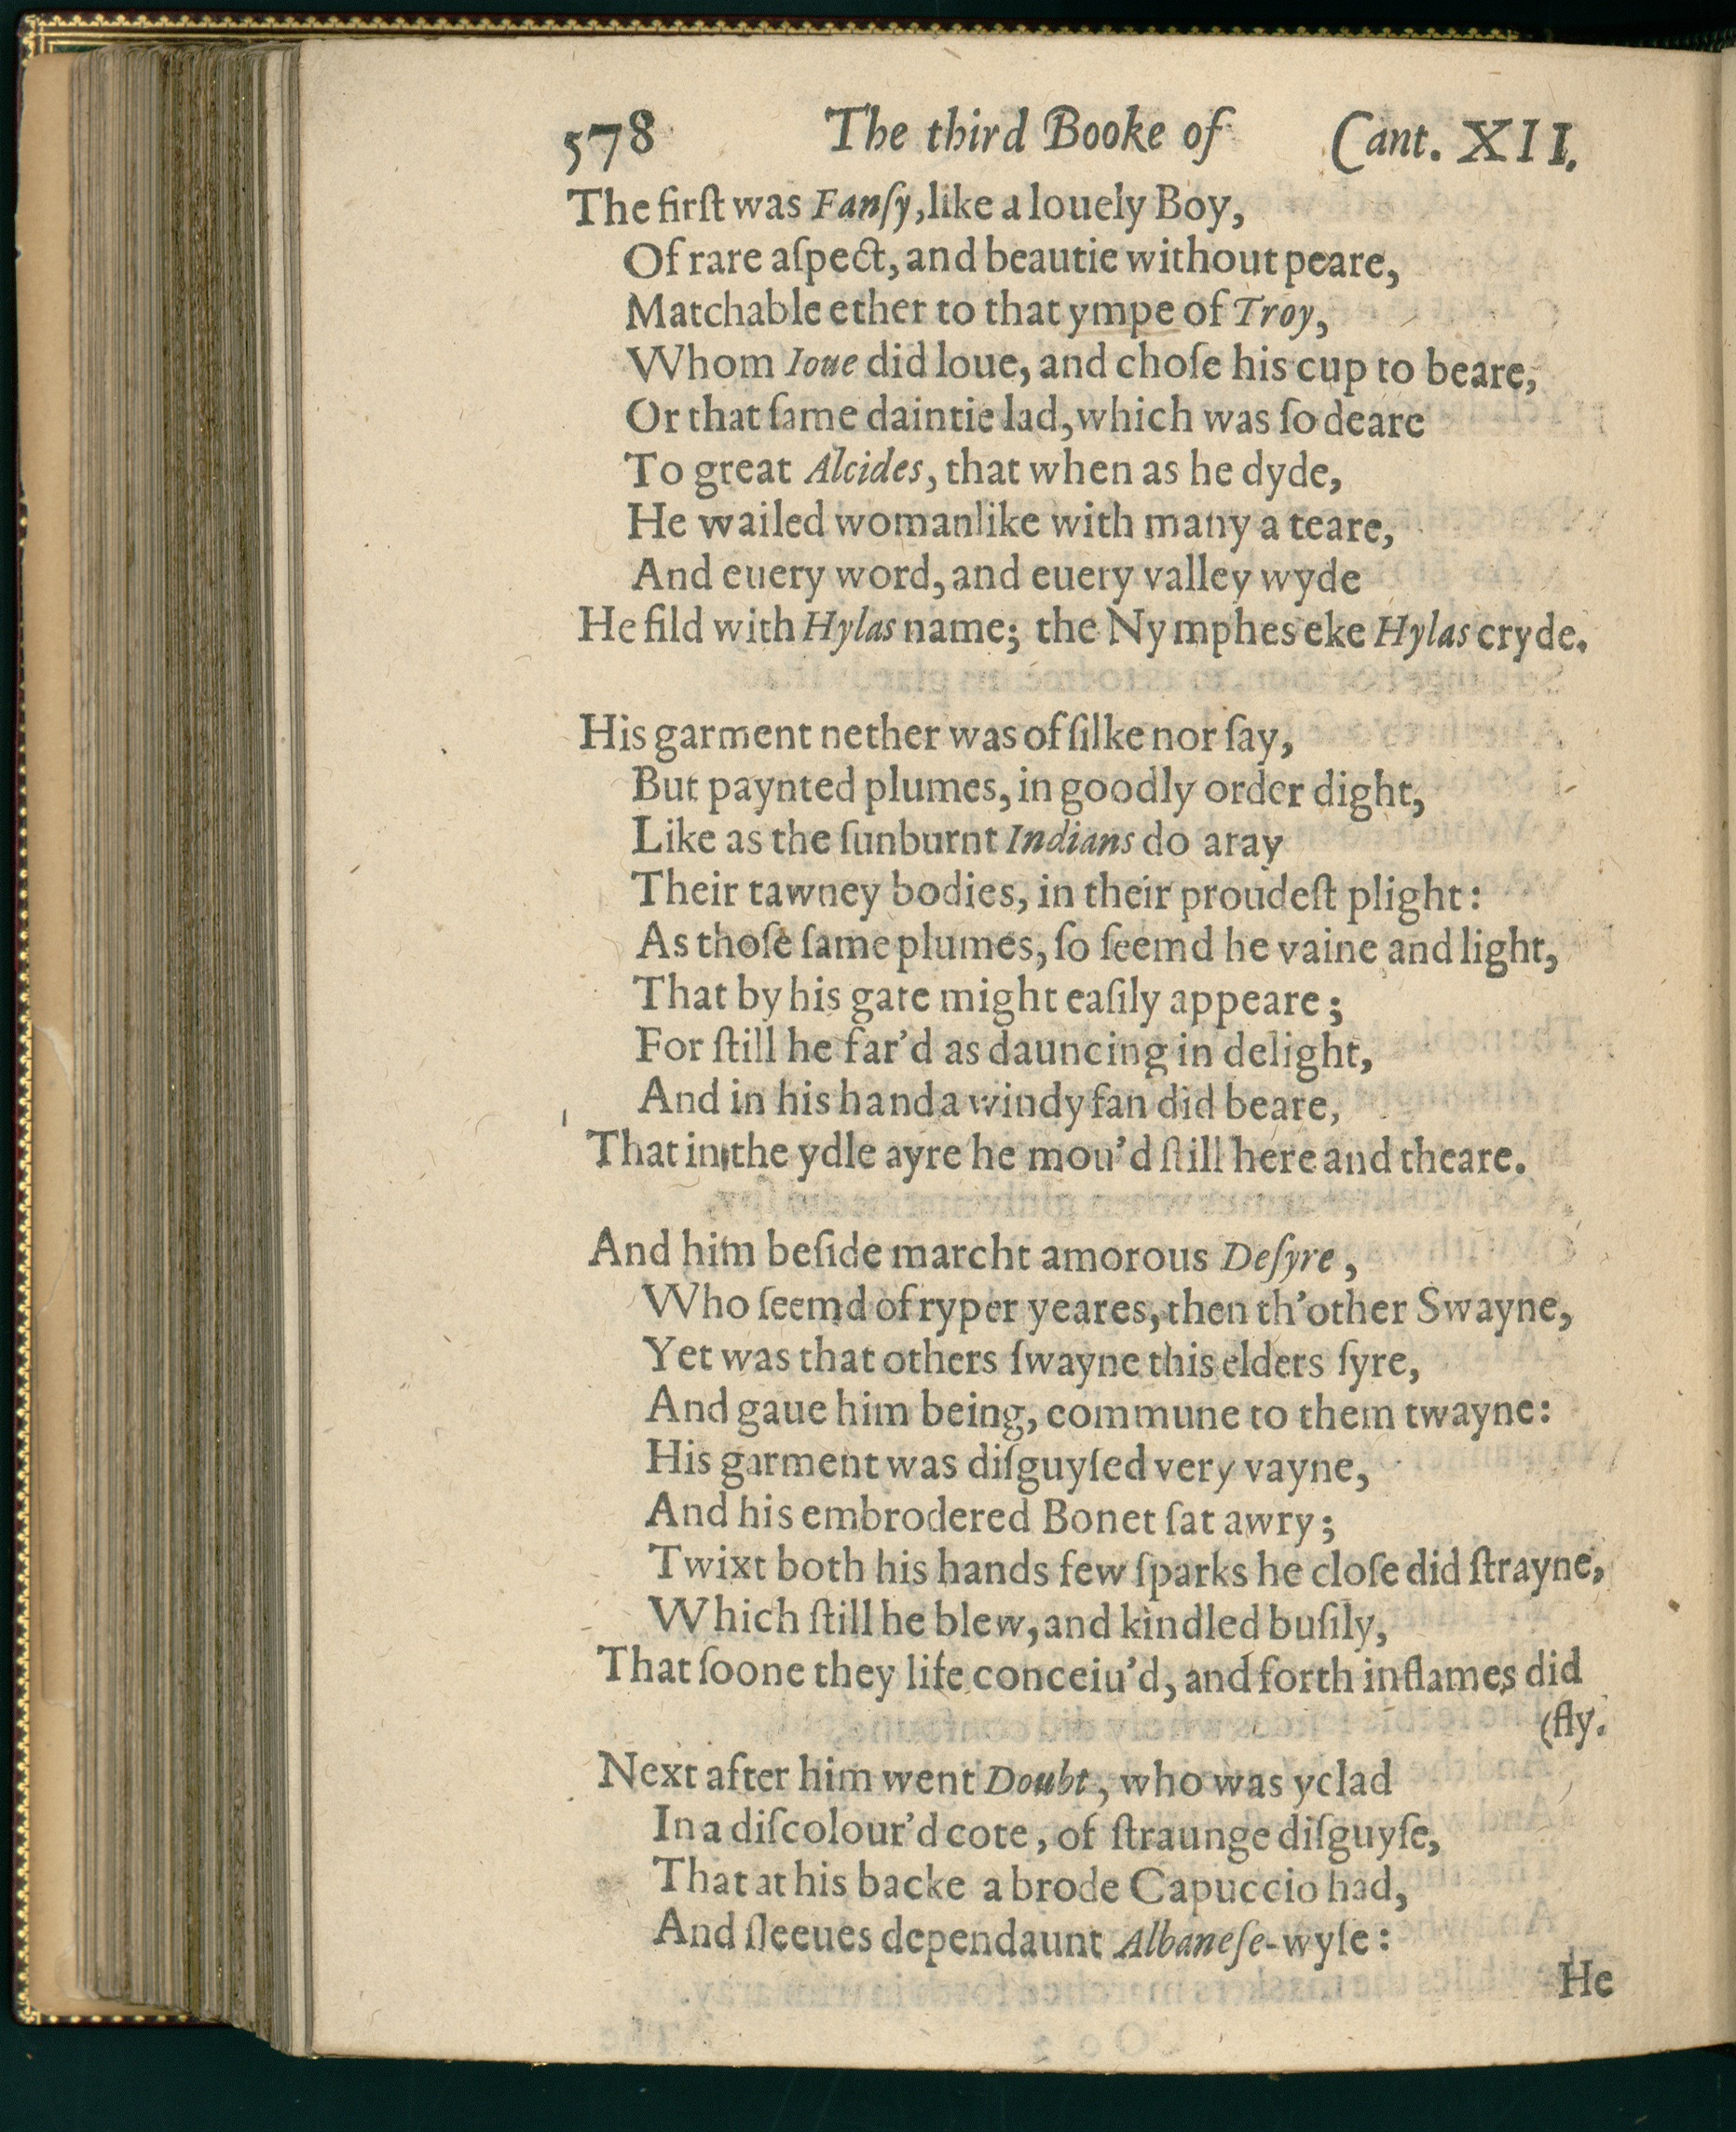 578 The third Booke of Cant. XII.
The firſt was Fanſy, like a louely Boy,
Of rare aſpect, and beautie without peare,
Matchable ether to that ympe of Troy,
Whom Ioue did loue, and choſe his cup to beare,
Or that ſame daintie lad, which was ſo deare
To great Alcides, that when as he dyde,
He wailed womanlike with many a teare,
And euery word, and euery valley wyde
He fild with Hylas name; the Nymphes eke Hylas cryde.
His garment nether was of ſilke nor ſay,
But paynted plumes, in goodly order dight,
Like as the ſunburnt Indians do aray
Their tawney bodies, in their proudeſt plight:
As thoſe ſame plumes, ſo ſeemd he vaine and light,
That by his gate might eaſily appeare;
For ſtill he far'd as dauncing in delight,
And in his hand a windy fan did beare,
That in the ydle ayre he mou'd ſtill here and theare.
And him beſide marcht amorous Deſyre,
Who ſeemd of ryper yeares, then th'other Swayne,
Yet was that others ſwayne this elders ſyre,
And gaue him being, commune to them twayne:
His garment was diſguyſed very vayne,
And his embrodered Bonet ſat awry;
Twixt both his hands few ſparks he cloſe did ſtrayne,
Which ſtill he blew, and kindled buſily,
That ſoone they life conceiu'd, and forth in flames did
(fly.
Next after him went Doubt, who was yclad
In a diſcolour'd cote, of ſtraunge diſguyſe,
That at his backe a brode Capuccio had,
And ſleeues dependaunt Albaneſe-wyſe:
He